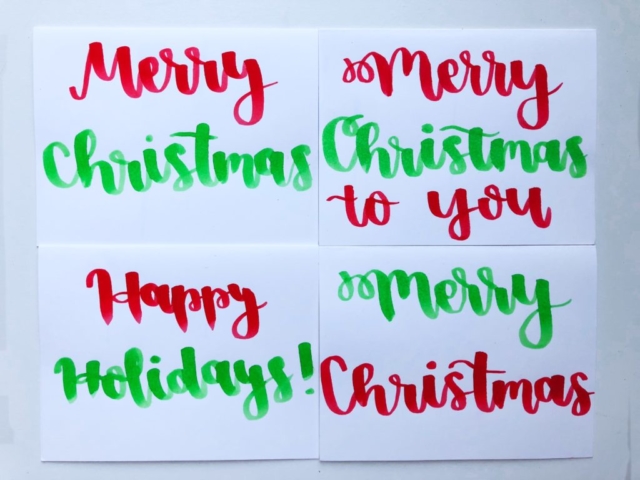 Merry
Christmas
Merry
Christmas
to you
Happy
Holidays!
Merry
Christmas